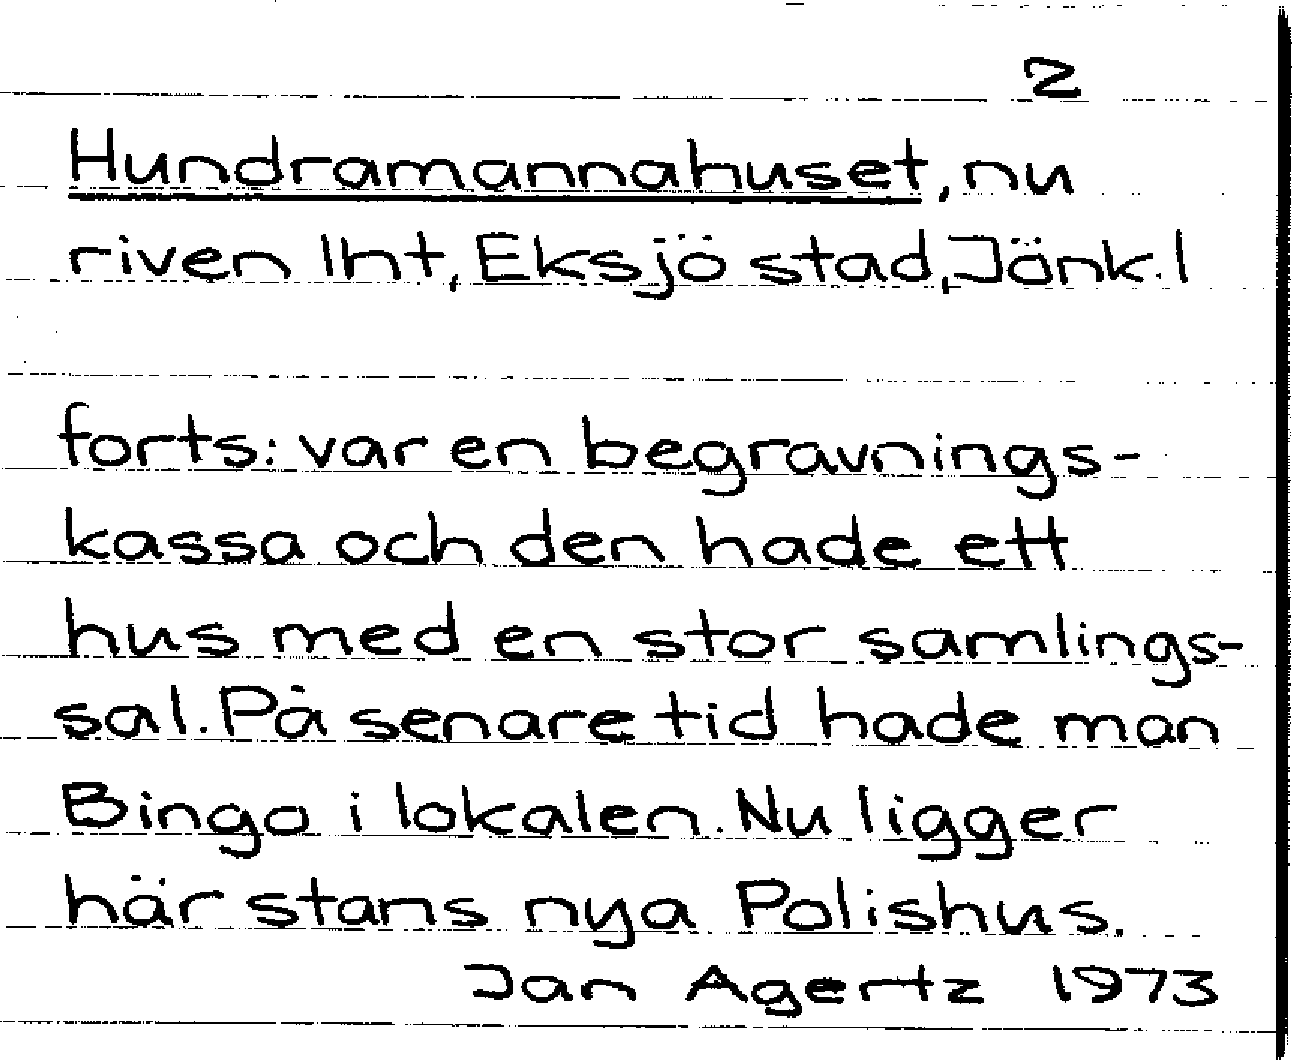 2
Hundramannahuset, nu
riven lht, Eksjö stad, Jönk. l
forts: var en begravnings-
kassa och den hade ett
hus med en stor samlings-
sal. På senare tid hade man
Bingo i lokalen. Nu ligger
här stans nya Polishus.
Jan Agertz 1973